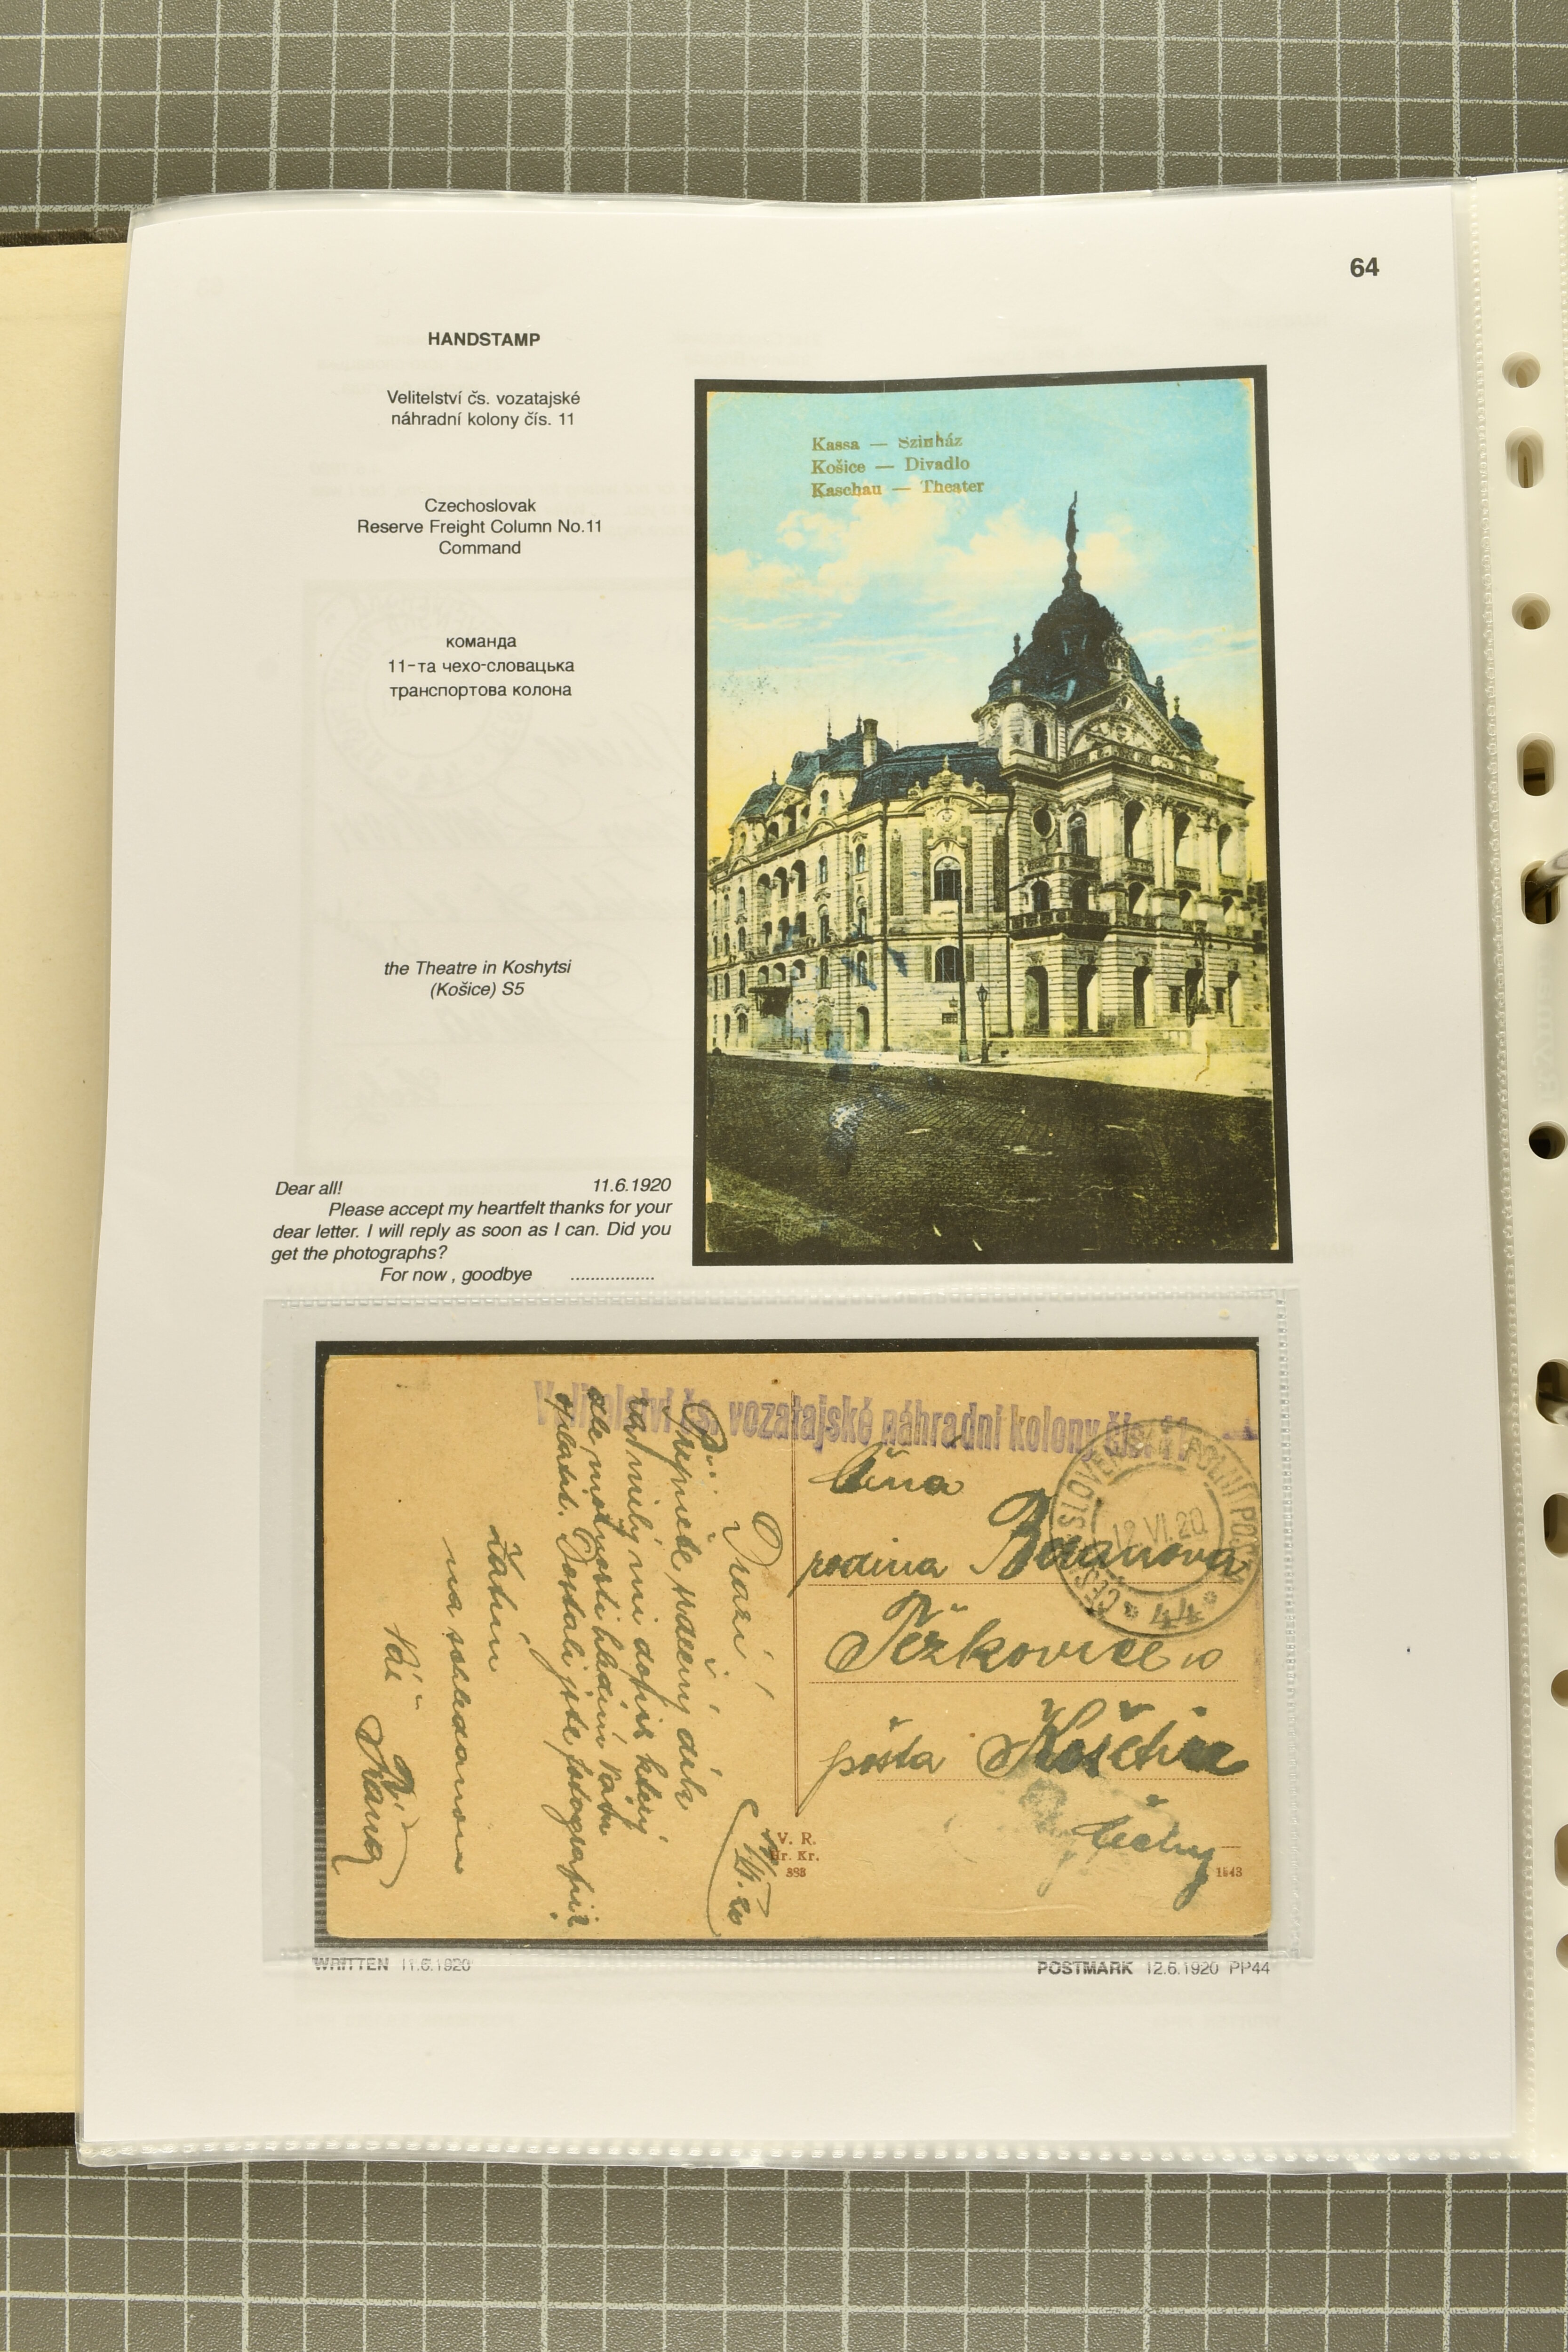 64
HANDSTAMP
Velitelství čs. vozatajské
náhradní kolony čís. 11
Czechoslovak
Reserve Freight Column No.11
Command
команда
11-та чехо-словацька
транспортова колона
Kassa — Szinház
Košice — Divadlo
Kaschau — Theater
the Theatre in Koshytsi
(Košice) S5
Dear all! 11.6.1920
Please accept my heartfelt thanks for your
dear letter. I will reply as soon as I can. Did you
get the photographs?
For now , goodbye ..................
Velitelství čs. vozatajské náhradní kolony čís. 11
POLNÍ POŠTA
12.VI.20
* 44 *
rodina
pošta
Čechy
Drazí
srdečný dík
milý mi dopis který
Dostali jste fotografie?
Zatím
na shledanou
Váš
V. R.
Hr. Kr.
383
1543
WRITTEN 11.6.1920
POSTMARK 12.6.1920 PP44